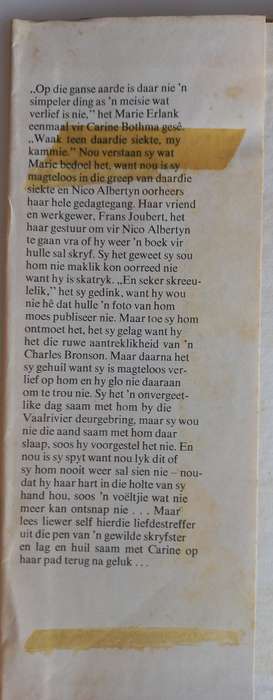 „Op die ganse aarde is daar nie 'n
simpeler ding as 'n meisie wat
verlief is nie,” het Marie Erlank
eenmaal vir Carine Bothma gesê.
„Waak teen daardie siekte, my
kammie.” Nou verstaan sy wat
Marie bedoel het, want nou is sy
magteloos in die greep van daardie
siekte en Nico Albertyn oorheers
haar hele gedagtegang. Haar vriend
en werkgewer, Frans Joubert, het
haar gestuur om vir Nico Albertyn
te gaan vra of hy weer 'n boek vir
hulle sal skryf. Sy het geweet sy sou
hom nie maklik kon oorreed nie
want hy is skatryk. „En seker skreeu-
lelik,” het sy gedink, want hy wou
nie hê dat hulle 'n foto van hom
moes publiseer nie. Maar toe sy hom
ontmoet het, het sy gelag want hy
het die ruwe aantreklikheid van 'n
Charles Bronson. Maar daarna het
sy gehuil want sy is magteloos ver-
lief op hom en hy glo nie daaraan
om te trou nie. Sy het 'n onvergeet-
like dag saam met hom by die
Vaalrivier deurgebring, maar sy wou
nie die aand saam met hom daar
slaap, soos hy voorgestel het nie. En
nou is sy spyt want nou lyk dit of
sy hom nooit weer sal sien nie – nou-
dat hy haar hart in die holte van sy
hand hou, soos 'n voëltjie wat nie
meer kan ontsnap nie . . . Maar
lees liewer self hierdie liefdestreffer
uit die pen van 'n gewilde skryfster
en lag en huil saam met Carine op
haar pad terug na geluk . . .